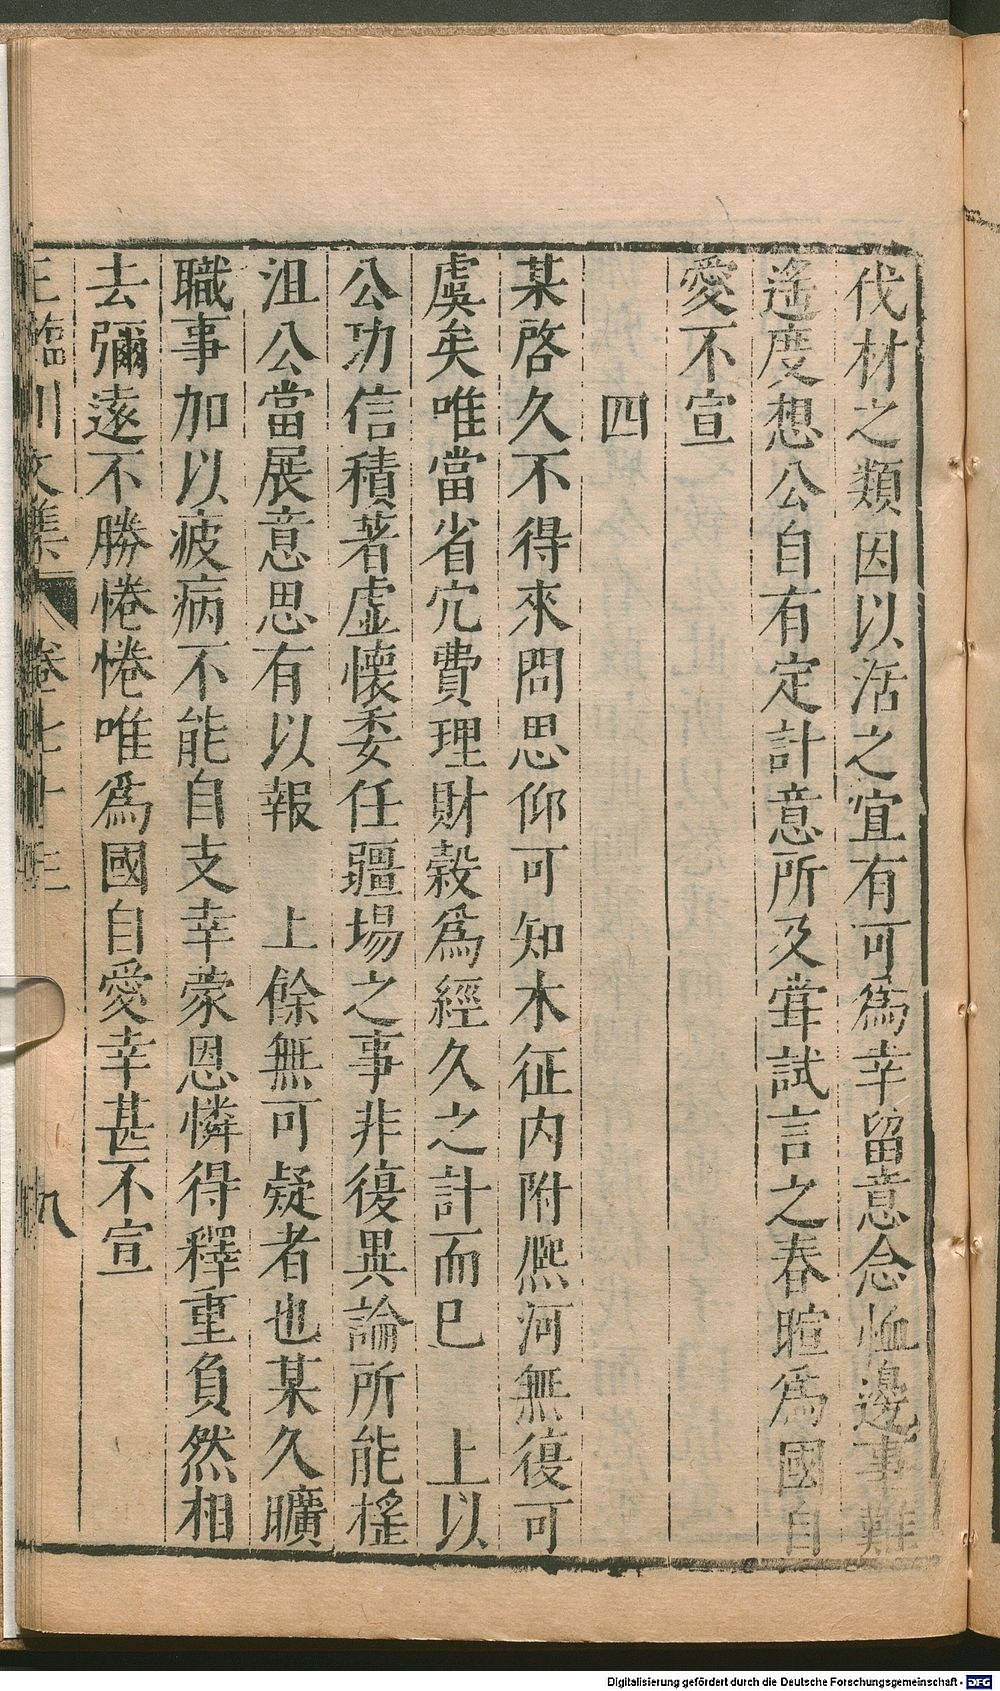 伐材之類因以活之宜有可爲幸留意念恤邊事難
遙度想公自有定計意所及甞試言之春暄爲國自
愛不宣
四
某啓久不得來問思仰可知木征内附熈河無復可
虞矣唯當省冗費理財穀爲經久之計而巳　上以
公功信積著虚懷委任疆場之事非復異論所能揺
沮公當展意思有以報　上餘無可疑者也某久曠
職事加以疲病不能自支幸蒙恩憐得釋重負然相
去彌遠不勝惓惓唯爲國自愛幸甚不宣
王臨川文集　卷七十三　九
Digitalisierung gefördert durch die Deutsche Forschungsgemeinschaft - DFG